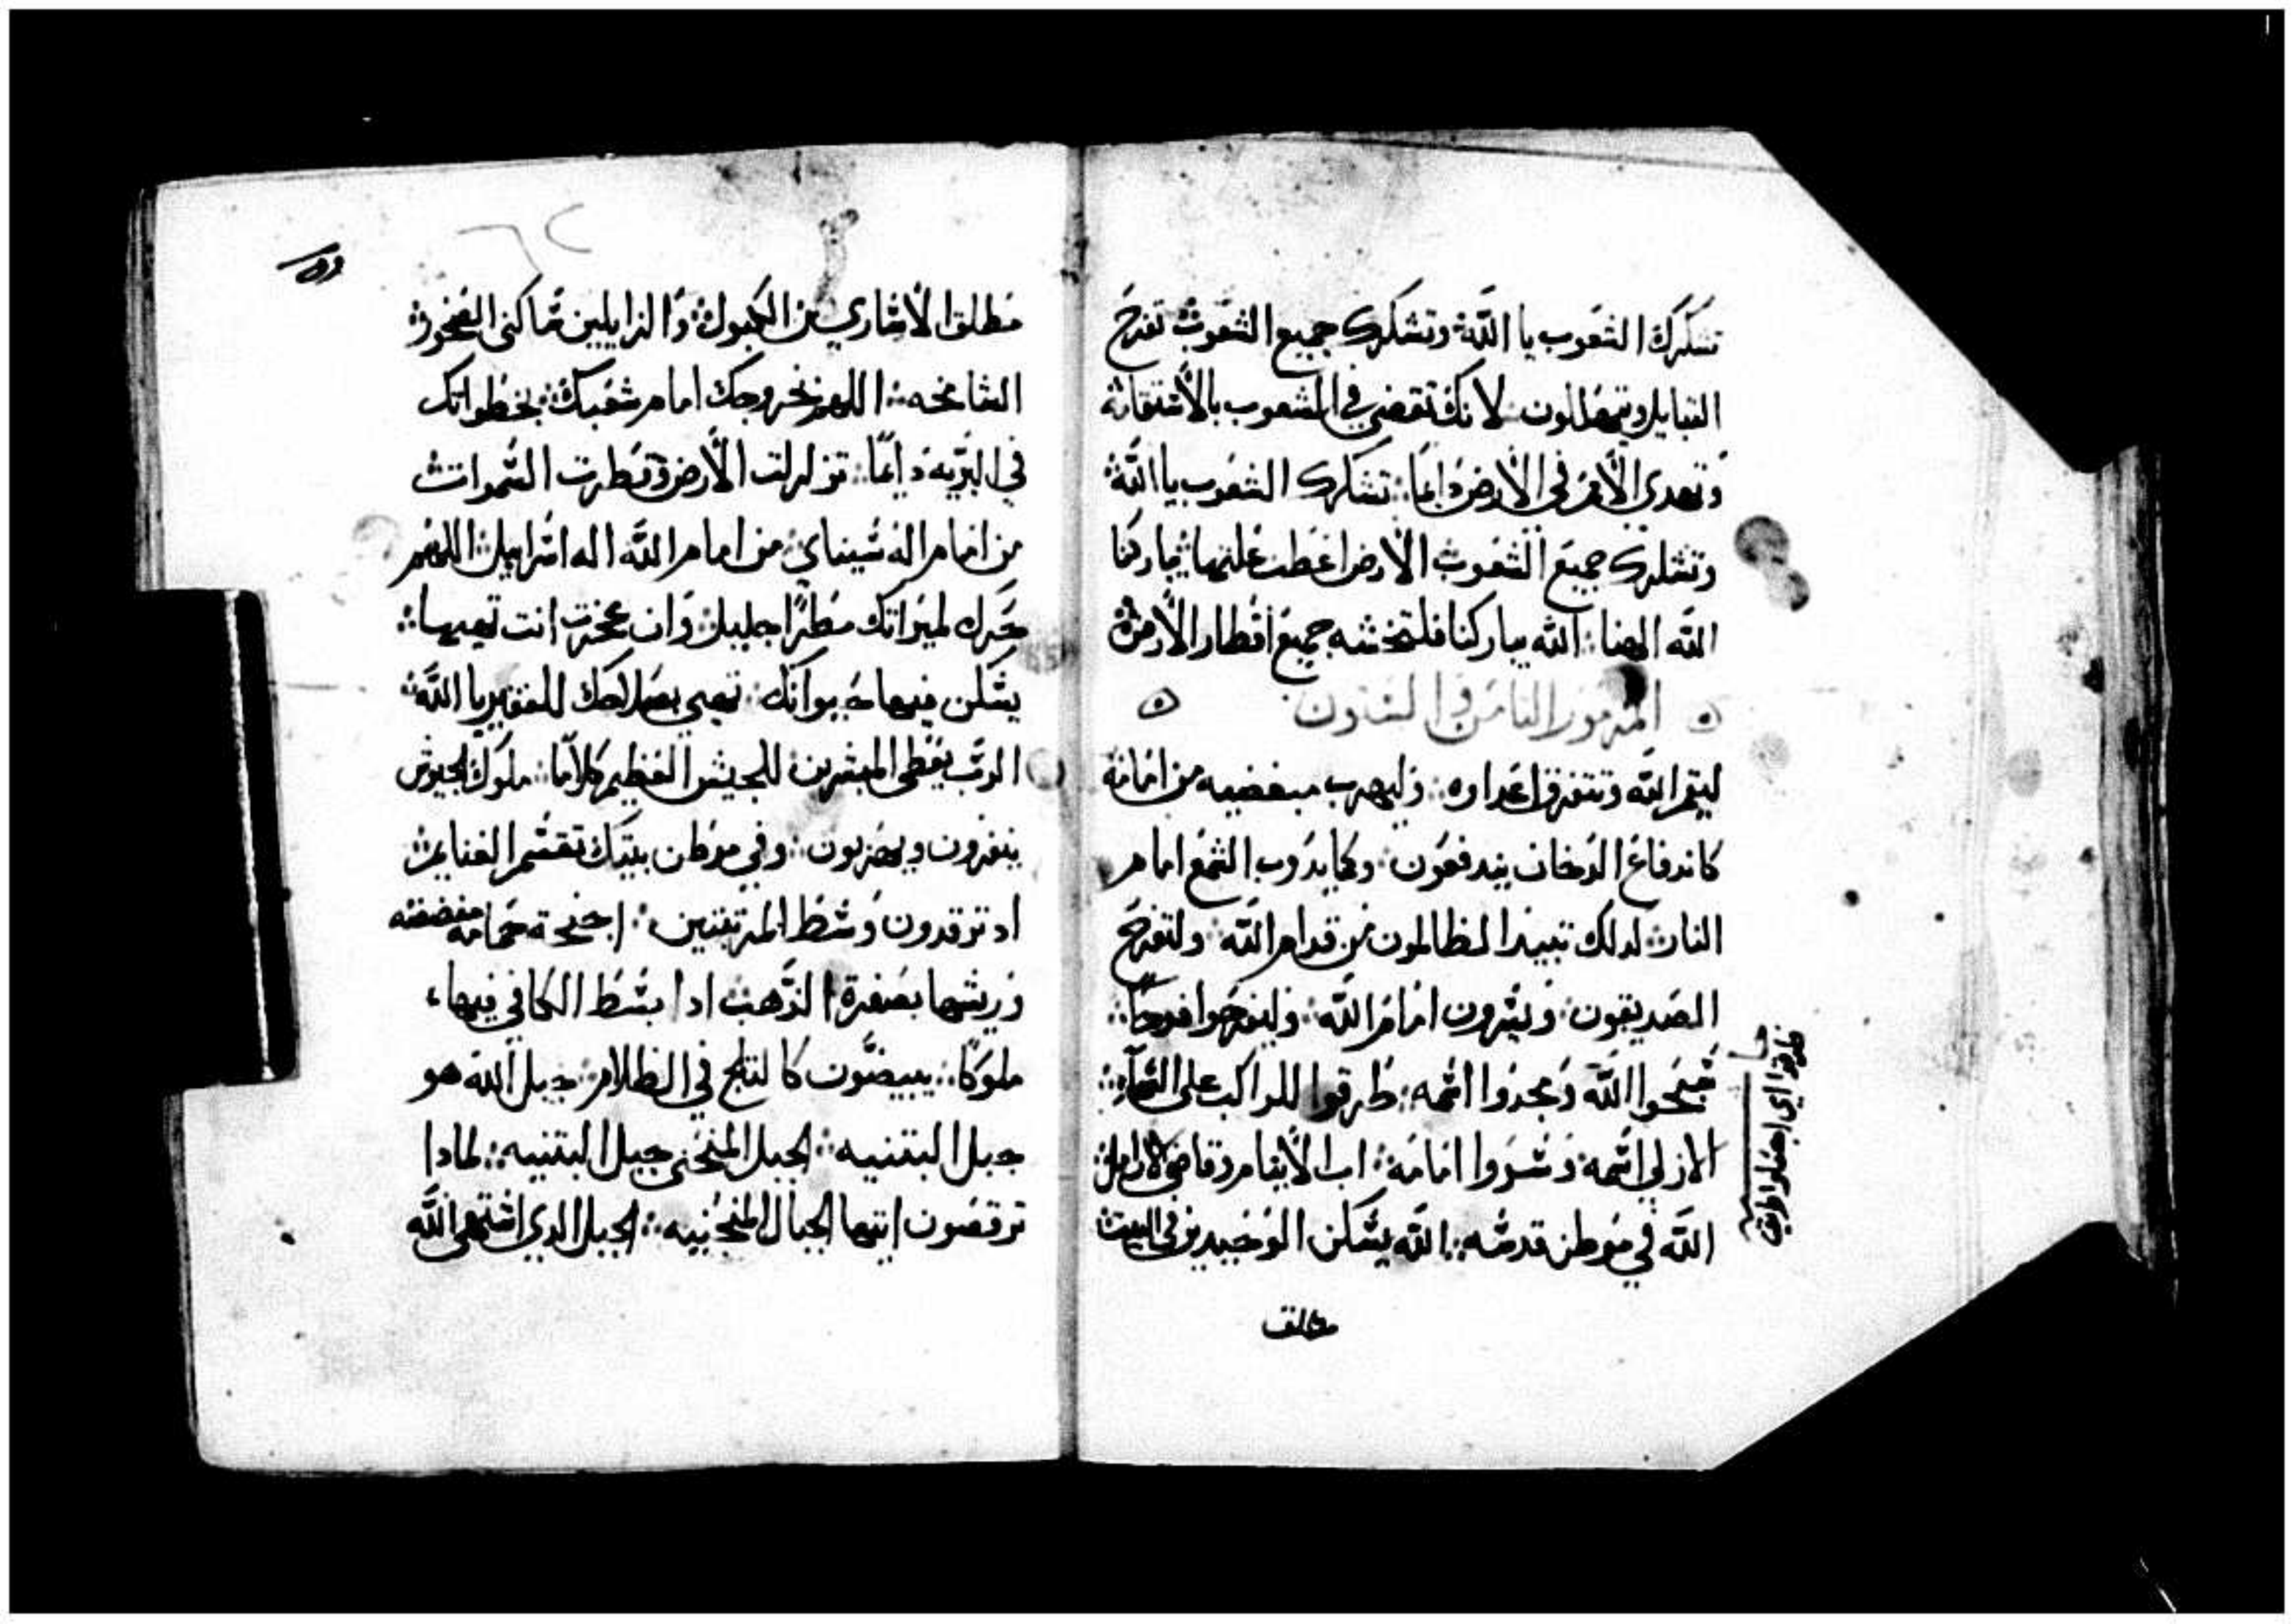 تشكرك الشعوب يا الله وتشكرك جميع الشعوب تفرح
القبايل ويتهللون لانك تقضي في الشعوب بالاستقامه
وتهدي الامم في الارض دايما تشكرك الشعوب يا الله
وتشكرك جميع الشعوب الارض اعطت غلتها يباركنا
الله الهنا الله يباركنا فلتخشه جميع اقطار الارض
المزمور الثامن والستون
ليقم الله وتتفرق اعداوه وليهرب مبغضيه من امامه
كاندفاع الدخان يندفعون وكما يدوب الشمع امام
النار لدلك تبيد الظالمون من قدام الله ولتفرح
الصديقون ويسرون امام الله وليفرحوا فرحا
سبحوا الله ومجدوا اسمه طرقوا للراكب على السماء
الازلي اسمه وسروا امامه اب الايتام وقاضي الارامل
الله في موطن قدسه الله يسكن الوحيدين في البيت
طرقوا اي اجعلوا طريق
مطلق
مطلق الاساري من الكبول والزايلين ساكني الصخور
الشامخه اللهم بخروجك امام شعبك بخطواتك
في البريه دايما تزلزلت الارض وقطرت السموات
من امام اله سيناي من امام الله اله اسراييل اللهم
تحرك لميراتك مطرا جليل وان عجزت انت تهيها
يسكن فيها حيواناتك تهيي بصلاحك للفقير يا الله
الرب يعطي المبشرين للجيش العظيم كلاما ملوك الجيوش
ينفرون ويهربون وفي موطن بيتك تقسم الغنايم
اد ترقدون وسط المرتفتين اجنحة حمامه مفضضه
وريشها بصفرة الذهب ادا بسط الكافي فيها
ملوكا يبيضون كالتلج في الظلام جبل الله هو
جبل البتنيه الجبل المنحني جبل البتنيه لمادا
ترقصون ايتها الجبال المنحنيه الجبل الدي اشتهى الله